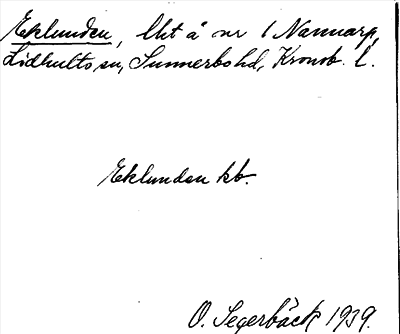 Eklunden, lht å nr 1 Nannarp,
Lidhults sn, Sunnerbo hd, Kronob. l.
Eklunden kb.
O. Segerbäck 1939.